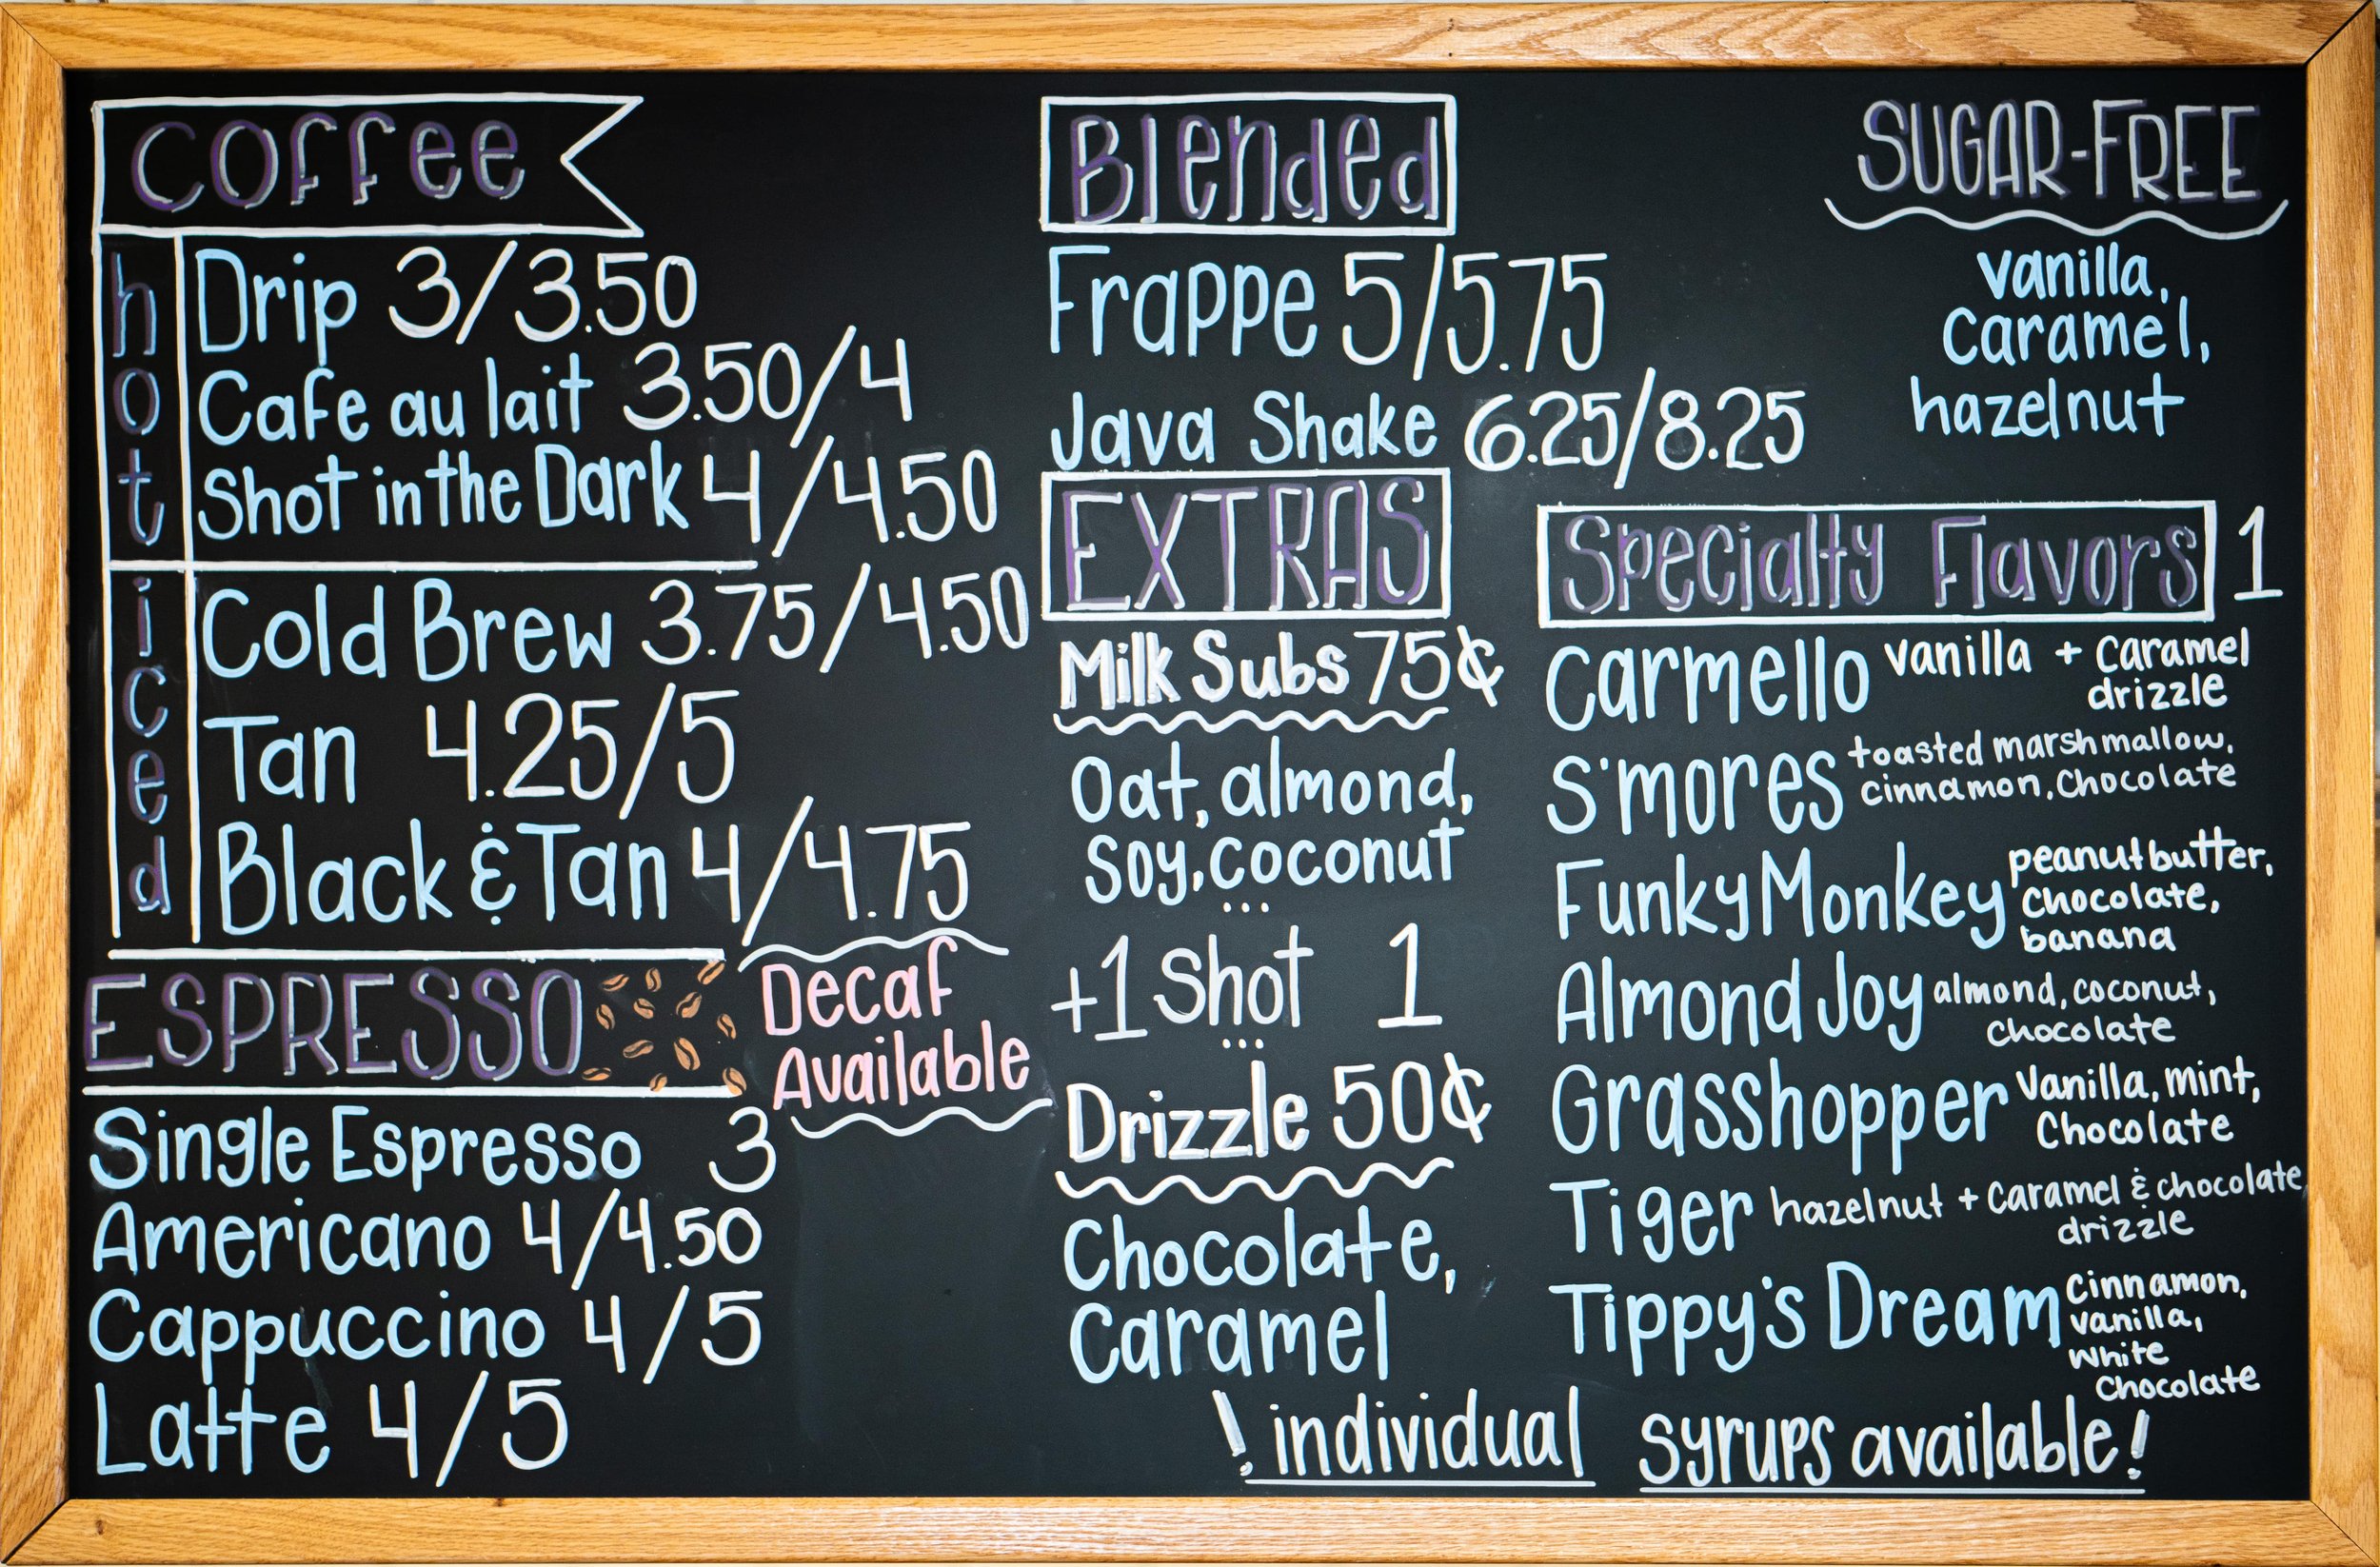 Coffee
hot
Drip 3/3.50
Cafe au lait 3.50/4
Shot in the Dark 4/4.50
iced
Cold Brew 3.75/4.50
Tan 4.25/5
Black & Tan 4/4.75
ESPRESSO
Decaf
Available
Single Espresso 3
Americano 4/4.50
Cappuccino 4/5
Latte 4/5
Blended
Frappe 5/5.75
Java Shake 6.25/8.25
EXTRAS
Milk Subs 75¢
Oat, almond,
Soy, coconut
...
+1 Shot 1
...
Drizzle 50¢
Chocolate,
Caramel
SUGAR-FREE
vanilla,
Caramel,
hazelnut
Specialty Flavors 1
Carmello vanilla + caramel
drizzle
S'mores toasted marshmallow,
cinnamon, chocolate
Funky Monkey peanut butter,
chocolate,
banana
Almond Joy almond, coconut,
chocolate
Grasshopper vanilla, mint,
chocolate
Tiger hazelnut + caramel & chocolate
drizzle
Tippy's Dream cinnamon,
vanilla,
white
chocolate
! individual syrups available!